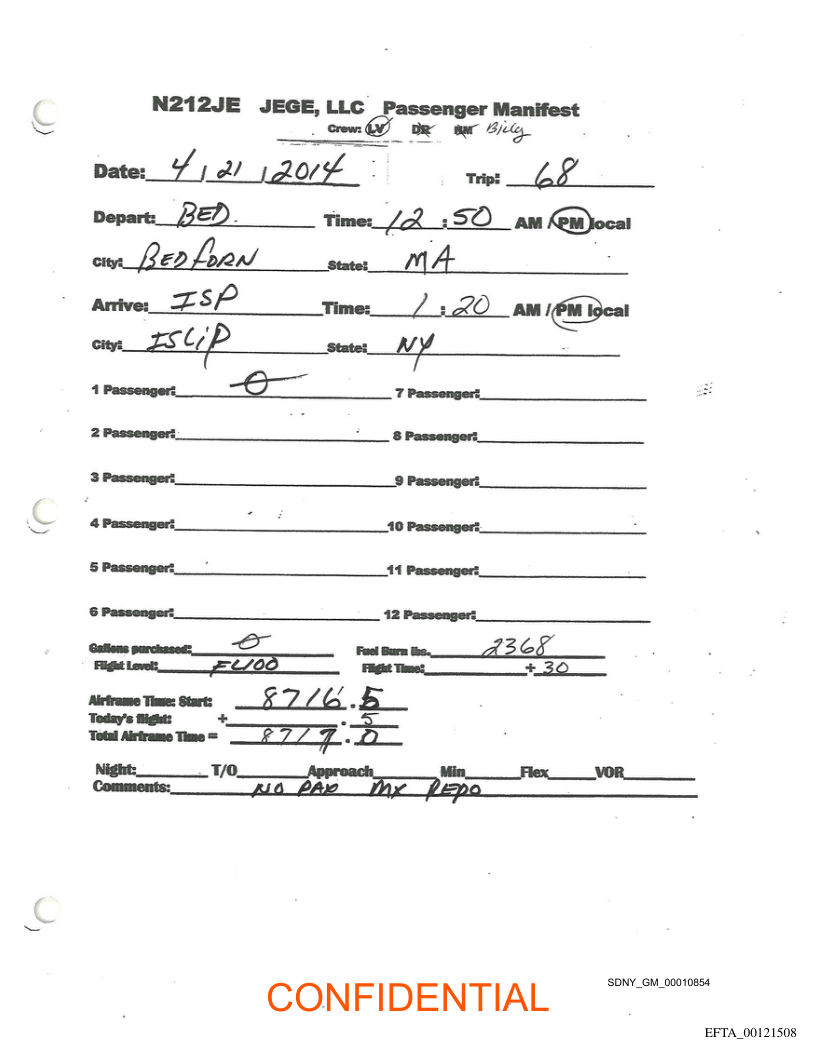 N212JE JEGE, LLC Passenger Manifest
Crew: LV DR BM Bjily
Date: 4 / 21 / 2014 Trip: 68
Depart: BED. Time: 12 : 50 AM / PM local
City: BEDFORN State: MA
Arrive: ISP Time: 1 : 20 AM / PM local
City: ISLIP State: NY
1 Passenger: 0 7 Passenger:
2 Passenger: 8 Passenger:
3 Passenger: 9 Passenger:
4 Passenger: 10 Passenger:
5 Passenger: 11 Passenger:
6 Passenger: 12 Passenger:
Gallons purchased: 0 Fuel Burn lbs. 2368
Flight Level: FL100 Flight Time: + 30
Airframe Time: Start: 8716.5
Today's flight: + .5
Total Airframe Time = 8717.0
Night: T/O Approach Min Flex VOR
Comments: NO PAX MX REPO
SDNY_GM_00010854
CONFIDENTIAL
EFTA_00121508